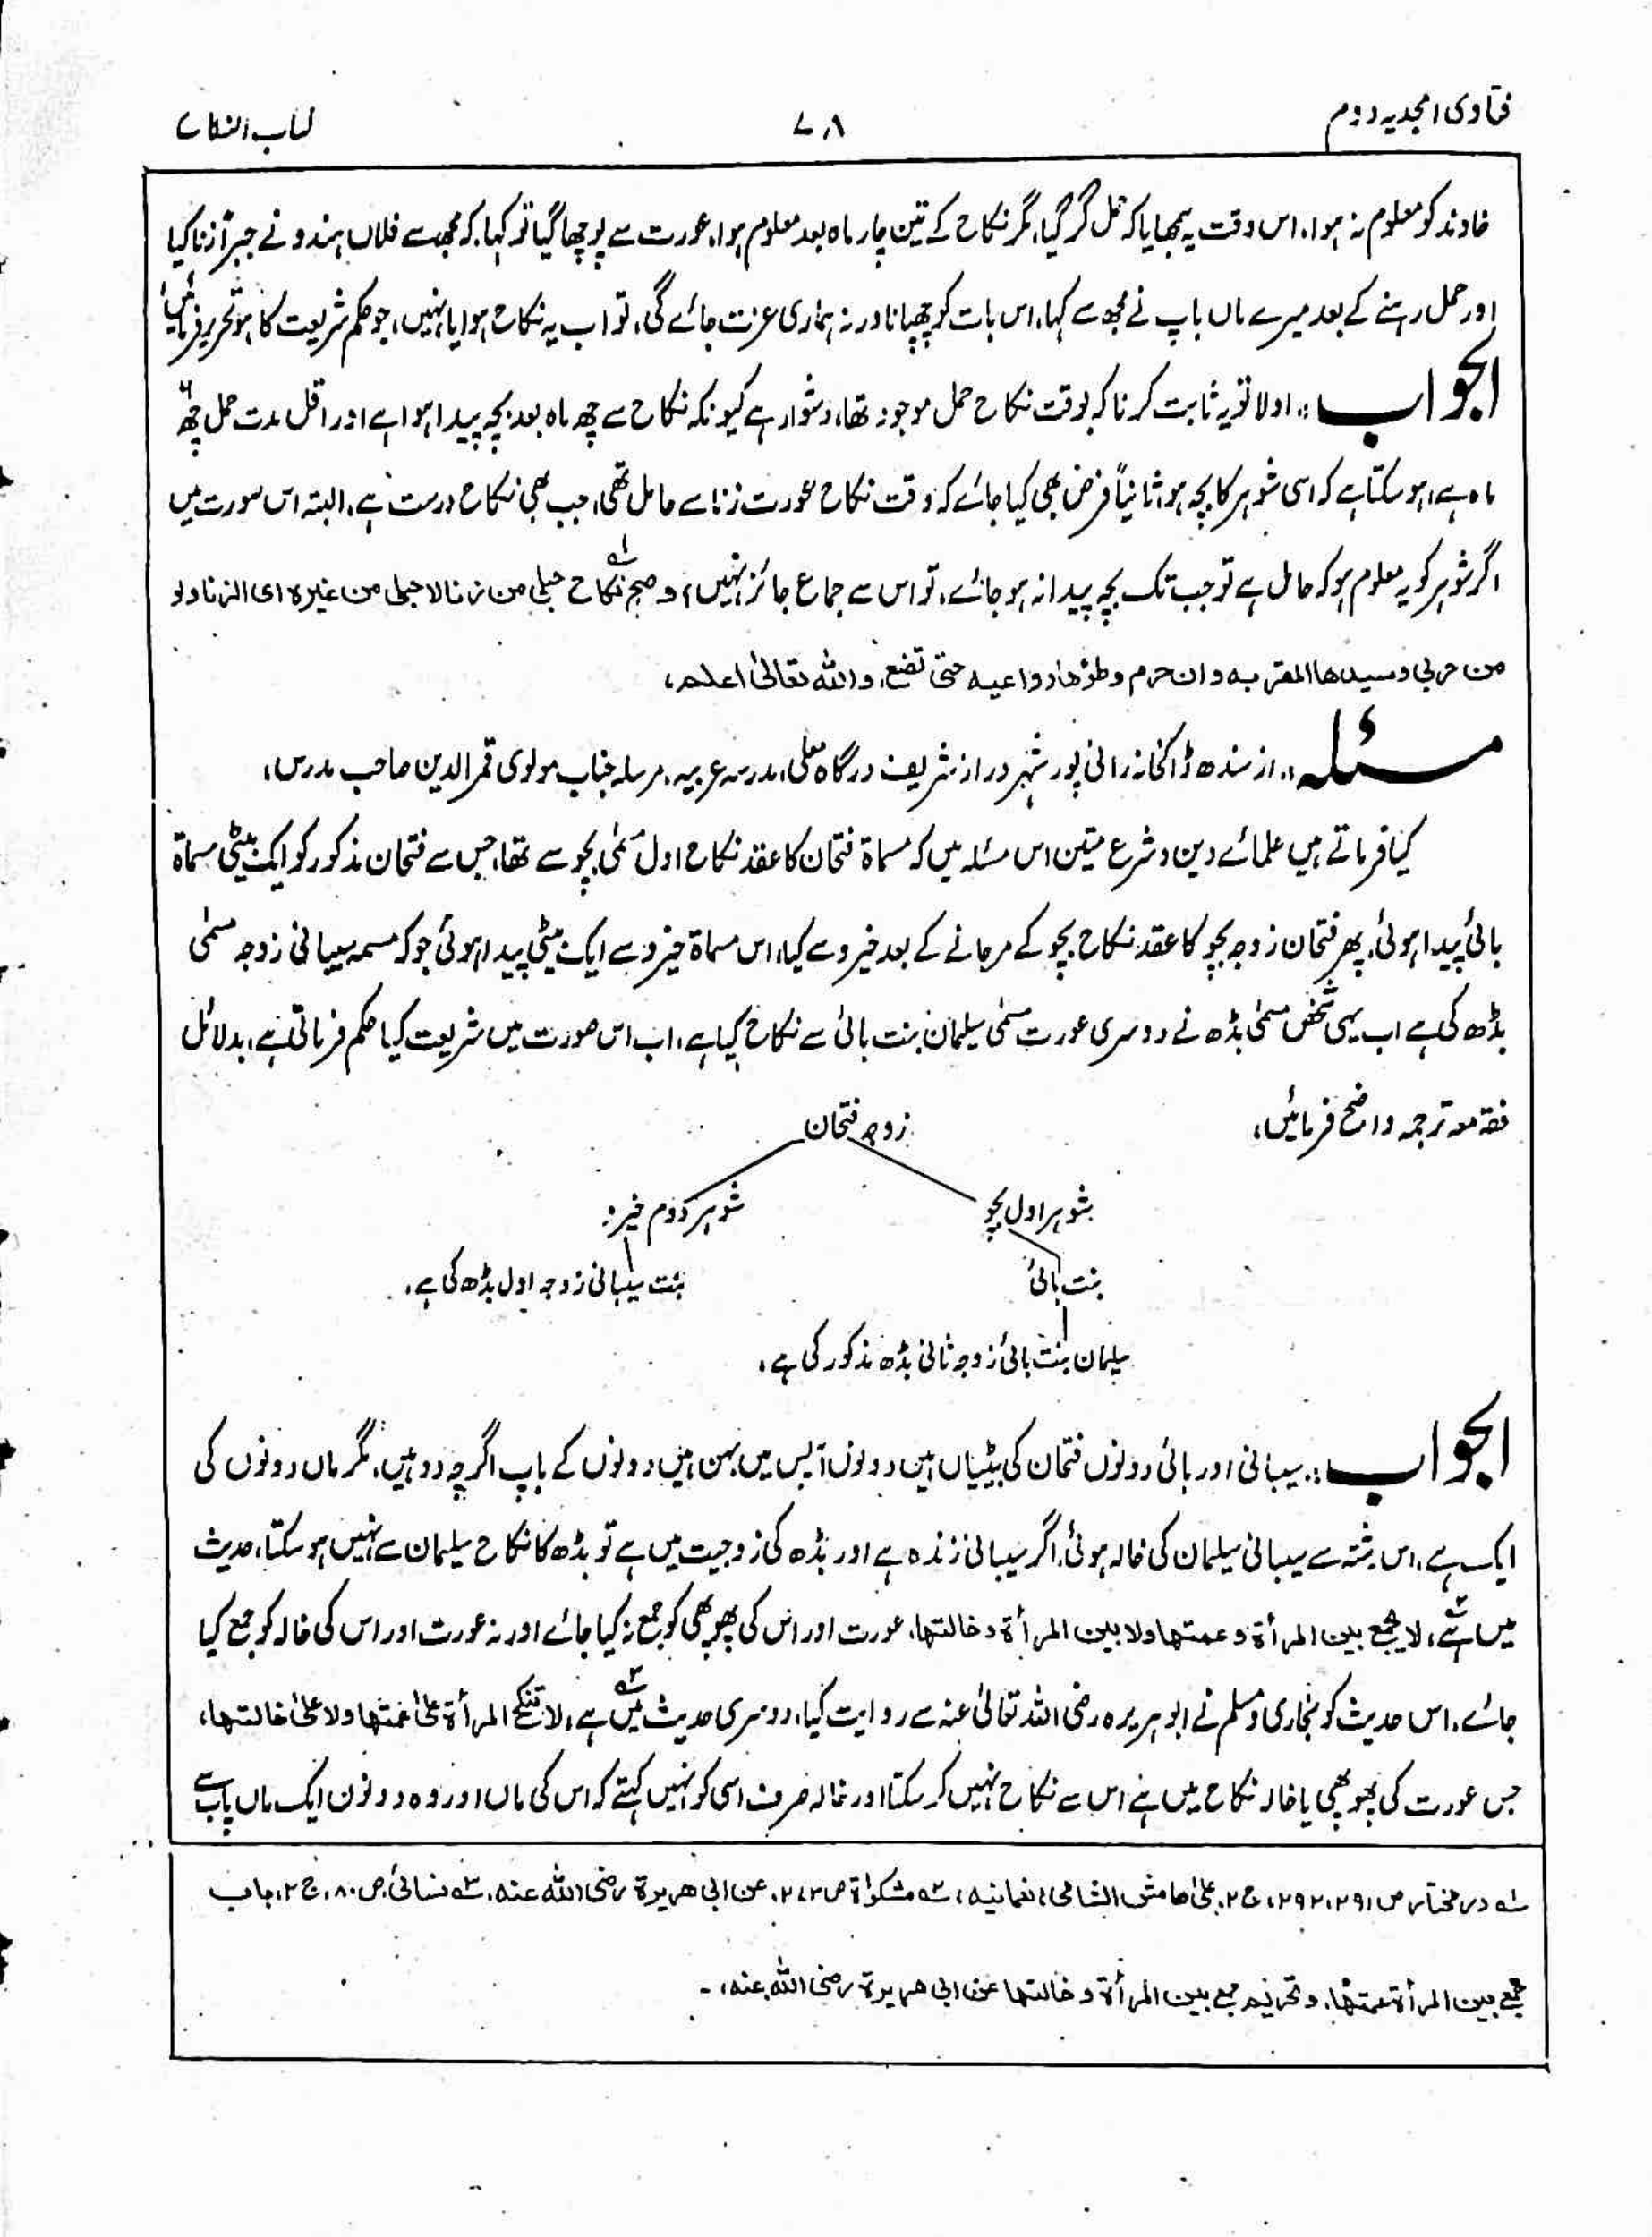 فتاوی امجدیہ دوم
۷۸
کتاب النکاح
خاوند کو معلوم نہ ہوا، اس وقت یہ سمجھایا کہ حمل گر گیا، مگر نکاح کے تین چار ماہ بعد معلوم ہوا، عورت سے پوچھا گیا تو کہا، کہ مجھ سے فلاں ہندو نے جبراً زنا کیا
اور حمل رہنے کے بعد میرے ماں باپ نے مجھ سے کہا، اس بات کو چھپانا ورنہ ہماری عزت جائے گی، تو اب یہ نکاح ہوا یا نہیں، جو حکم شریعت کا ہو تحریر فرمائیں،
الجواب :۔ اولا تو یہ ثابت کرنا کہ بوقت نکاح حمل موجود تھا، دشوار ہے کیونکہ نکاح سے چھ ماہ بعد بچہ پیدا ہوا ہے اور اقل مدت حمل چھ
ماہ ہے، ہو سکتا ہے کہ اسی شوہر کا بچہ ہو، ثانیاً فرض بھی کیا جائے کہ وقت نکاح عورت زنا سے حامل تھی، جب بھی نکاح درست ہے، البتہ اس صورت میں
اگر شوہر کو یہ معلوم ہو کہ حامل ہے تو جب تک بچہ پیدا نہ ہو جائے، تو اس سے جماع جائز نہیں، وصح نکاح حبلی من زنا لا حبلی من غیرہ ای الزنا ولو
من حربی وسیدھا المقربہ وان حرم وطؤھا ودواعیہ حتی تضع، واللہ تعالیٰ اعلم،
مسئلہ :۔ از سندھ ڈاکخانہ رانی پور شہر دراز شریف درگاہ معلی، مدرسہ عربیہ، مرسلہ جناب مولوی قمر الدین صاحب مدرس،
کیا فرماتے ہیں علمائے دین و شرع متین اس مسئلہ میں کہ مسماۃ فتحان کا عقد نکاح اول مسمٰی بچو سے تھا، جس سے فتحان مذکور کو ایک بیٹی مسماۃ
بائی پیدا ہوئی، پھر فتحان زوجہ بچو کا عقد نکاح بچو کے مرجانے کے بعد خیرو سے کیا، اس مسماۃ خیرو سے ایک بیٹی پیدا ہوئی جو کہ مسمہ سیبانی زوجہ مسمی
بڈھ کی ہے اب یہی شخص مسمیٰ بڈھ نے دوسری عورت مسمی سیلمان بنت بائی سے نکاح کیا ہے، اب اس صورت میں شریعت کیا حکم فرماتی ہے، بدلائل
فقہ معہ ترجمہ واضح فرمائیں،
زوجہ فتحان
شوہر اول بچو
شوہر دوم خیرو
بنت بائی
بنت سیبانی زوجہ اول بڈھ کی ہے،
سیلمان بنت بائی زوجہ ثانی بڈھ مذکور کی ہے،
الجواب :۔ سیبانی اور بائی دونوں فتحان کی بیٹیاں ہیں دونوں آپس میں بہن ہیں دونوں کے باپ اگرچہ دو ہیں، مگر ماں دونوں کی
ایک ہے، اس رشتہ سے سیبانی سیلمان کی خالہ ہوئی، اگر سیبانی زندہ ہے اور بڈھ کی زوجیت میں ہے تو بڈھ کا نکاح سیلمان سے نہیں ہو سکتا، حدیث
میں ہے، لا یجمع بین المرأۃ وعمتھا ولا بین المرأۃ وخالتھا، عورت اور اس کی پھوپھی کو جمع نہ کیا جائے اور نہ عورت اور اس کی خالہ کو جمع کیا
جائے، اس حدیث کو بخاری و مسلم نے ابو ہریرہ رضی اللہ تعالیٰ عنہ سے روایت کیا، دوسری حدیث میں ہے، لا تنکح المرأۃ علیٰ عمتھا ولا علیٰ خالتھا،
جس عورت کی پھوپھی یا خالہ نکاح میں ہے اس سے نکاح نہیں کر سکتا اور خالہ صرف اسی کو نہیں کہتے کہ اس کی ماں اور وہ دونوں ایک ماں باپ سے
لہ در مختار ص ۲۹۱، ۲۹۲، ج ۲، علیٰ ھامش الشامی، نعمانیہ، ۲ہ مشکوٰۃ ص ۲۷۳، عن ابی ھریرۃ رضی اللہ عنہ، ۳ہ نسائی، ص ۸۰، ج ۲، باب
جمع بین المرأۃ عمتھا، وتحریم جمع بین المرأۃ وخالتھا عن ابی ھریرۃ رضی اللہ عنہ، ۔